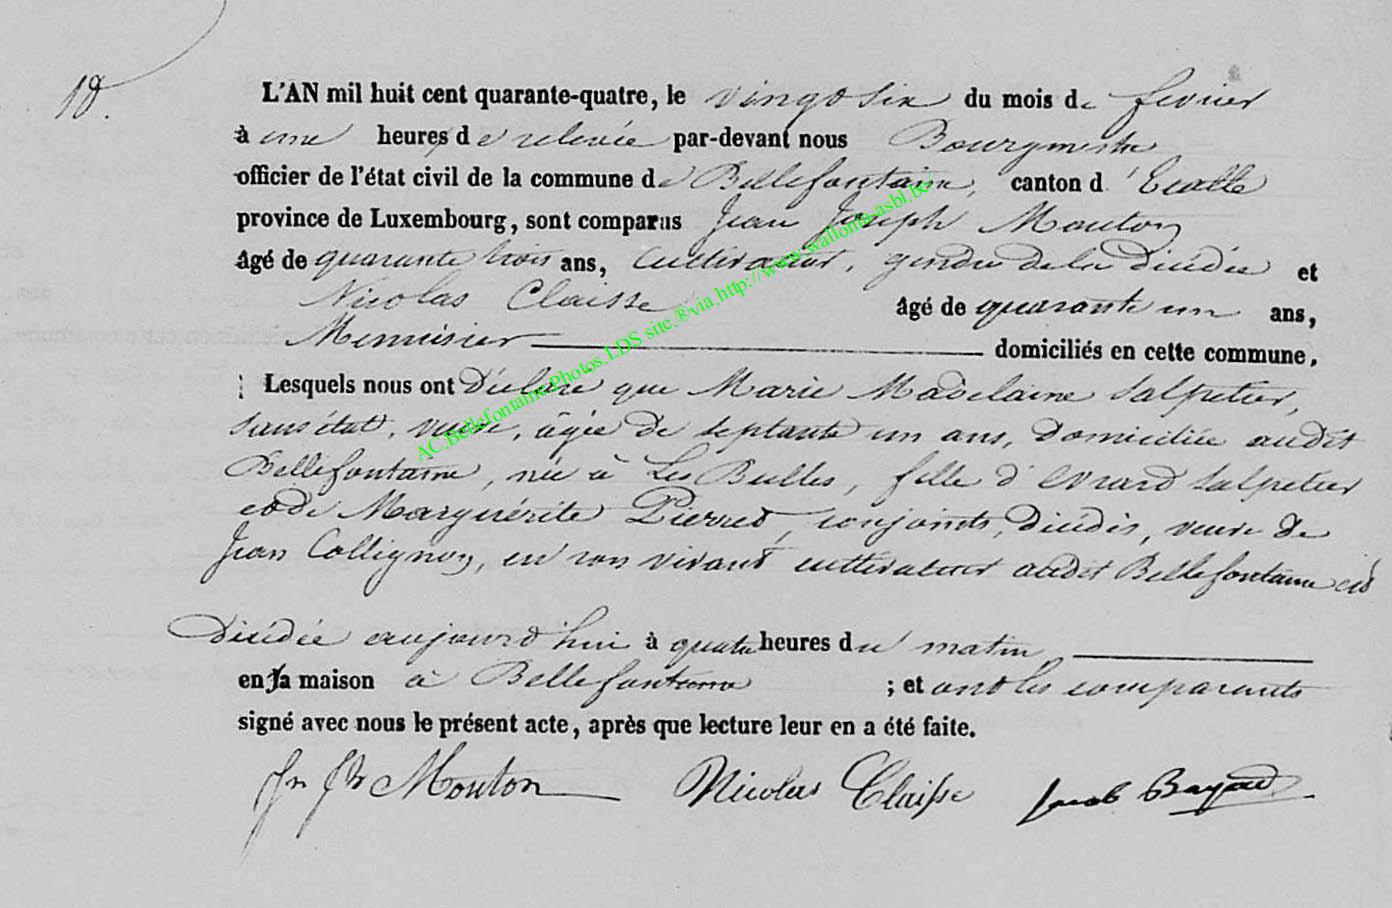 10.
L'AN mil huit cent quarante-quatre, le vingt six du mois de fevrier
à une heures de relevée par-devant nous Bourgmestre
officier de l'état civil de la commune de Bellefontaine, canton d'Etalle
province de Luxembourg, sont comparus Jean Joseph Mouton
âgé de quarante trois ans, Cultivateur, gendre de la Dicédée et
Nicolas Claisse âgé de quarante un ans,
Menuisier domiciliés en cette commune.
Lesquels nous ont Déclaré que Marie Madelaine Salpetier,
sans état, veuve, âgée de septante un ans, Domiciliée audit
Bellefontaine, née à Les Bulles, fille d'Evrard Salpetier
et de Marguérite Pierret, conjoints, Dicédés, veuve de
Jean Collignon, en son vivant cultivateur audit Bellefontaine est
Dicédée aujourd'hui à quatre heures du matin,
en sa maison à Bellefontaine ; et ont les comparants
signé avec nous le présent acte, après que lecture leur en a été faite.
Jn Jh Mouton Nicolas Claisse Jacob Bayard
AC.Bellefontaine.Photos.LDS site.®via.http://www.wallonia-asbl.be/